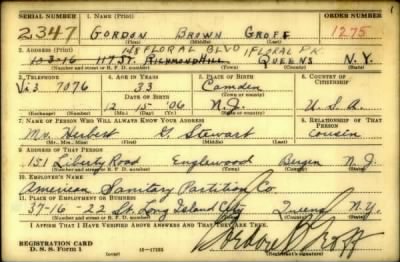 SERIAL NUMBER 1. NAME (Print) ORDER NUMBER
2347 GORDON BROWN GROFF 1275
(First) (Middle) (Last)
148 FLORAL BLVD FLORAL PK.
2. ADDRESS (Print)
117 ST. RICHMOND HILL QUEENS N.Y.
(Number and street or R. F. D. number) (Town) (County) (State)
3. TELEPHONE 4. AGE IN YEARS 5. PLACE OF BIRTH 6. COUNTRY OF CITIZENSHIP
7076 33 Camden
DATE OF BIRTH (Town or county)
12 15 '06 N.J. U.S.A.
(Exchange) (Number) (Mo.) (Day) (Yr.) (State or country)
7. NAME OF PERSON WHO WILL ALWAYS KNOW YOUR ADDRESS 8. RELATIONSHIP OF THAT PERSON
Mr. Herbert G. Stewart cousin
(Mr., Mrs., Miss) (First) (Middle) (Last)
9. ADDRESS OF THAT PERSON
151 Liberty Road Englewood Bergen N.J.
(Number and street or R. F. D. number) (Town) (County) (State)
10. EMPLOYER'S NAME
American Sanitary Partition Co.
11. PLACE OF EMPLOYMENT OR BUSINESS
37-16 - 22 St. Long Island City Queens N.Y.
(Number and street or R. F. D. number) (Town) (County) (State)
I AFFIRM THAT I HAVE VERIFIED ABOVE ANSWERS AND THAT THEY ARE TRUE.
REGISTRATION CARD
D. S. S. Form 1
Groff